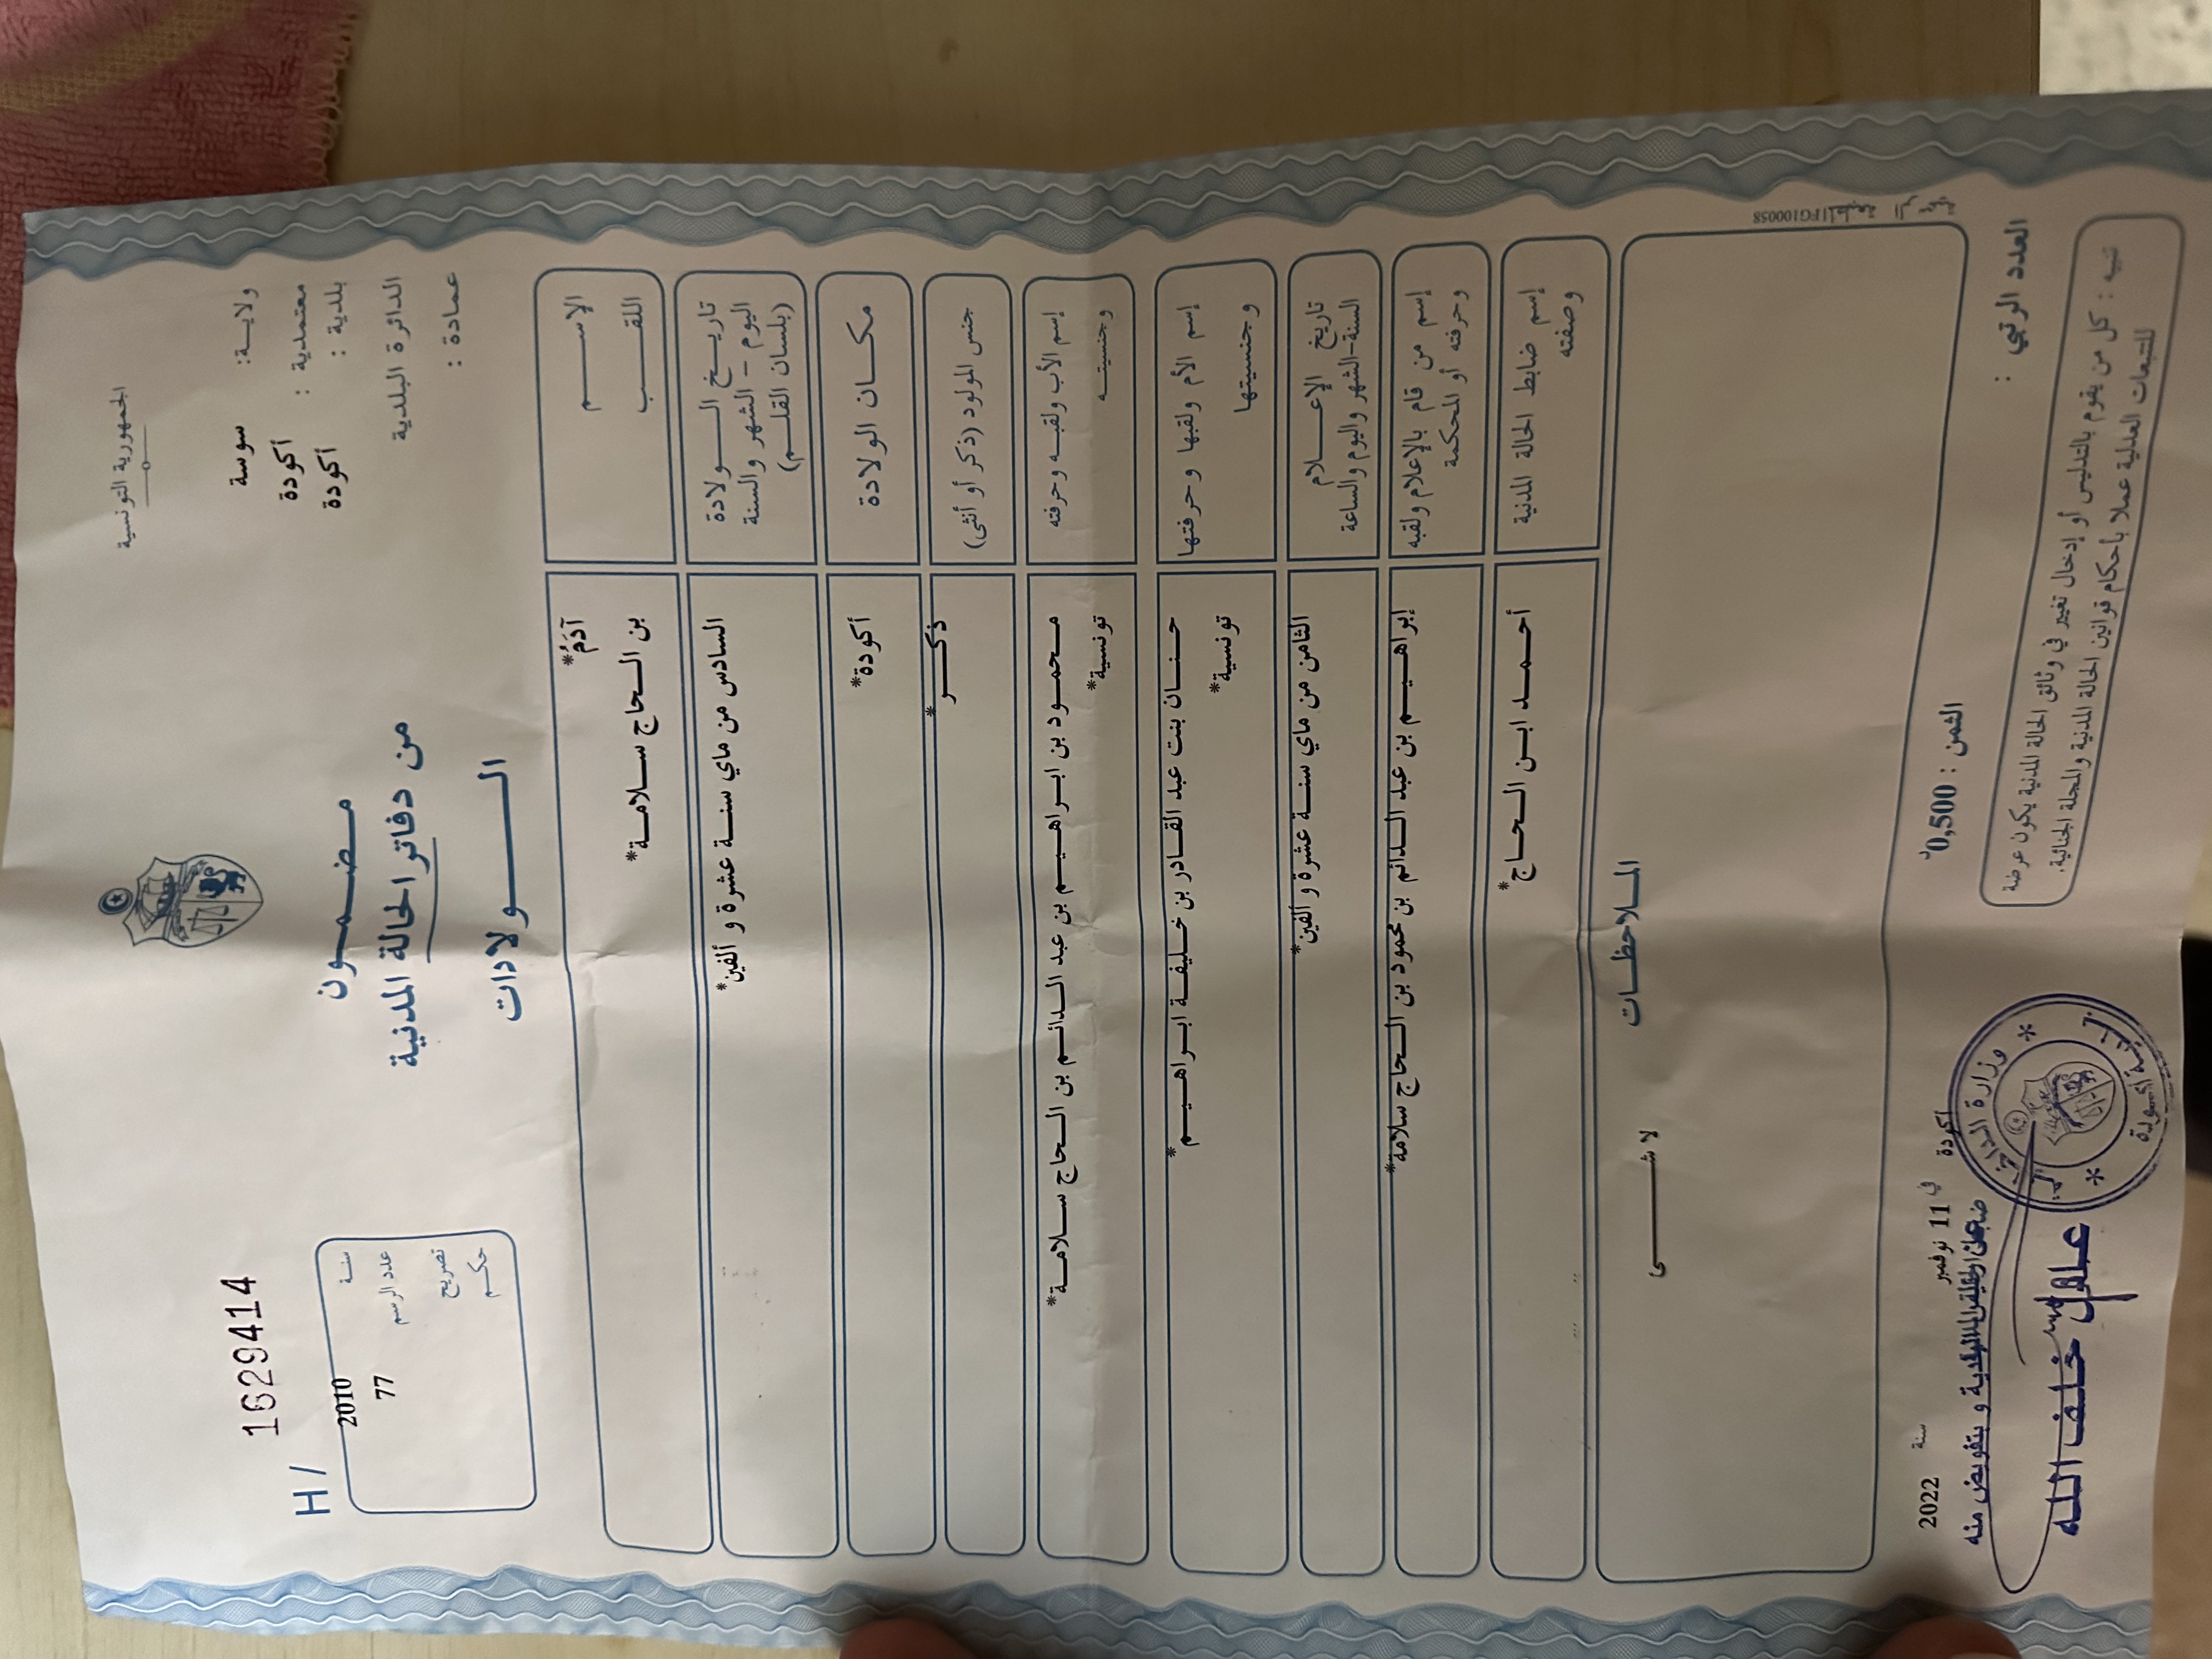 الجمهورية التونسية
ولاية: سوسة
معتمدية : أكودة
بلدية : أكودة
الدائرة البلدية
عمادة :
مضمون
من دفاتر الحالة المدنية
الولادات
1629414
H /
سنة 2010
عدد الرسم 77
تصريح
حكم
الاسم آدَمُ*
اللقب بن الحاج سلامة*
تاريخ الولادة السادس من ماي سنة عشرة و ألفين*
اليوم - الشهر والسنة
(بلسان القلم)
مكان الولادة أكودة*
جنس المولود (ذكر أو أنثى) ذكر*
إسم الأب ولقبه وحرفته محمود بن ابراهيم بن عبد الدائم بن الحاج سلامة*
وجنسيته تونسية*
إسم الأم ولقبها وحرفتها حنان بنت عبد القادر بن خليفة ابراهيم*
وجنسيتها تونسية*
تاريخ الإعلام الثامن من ماي سنة عشرة و ألفين*
السنة-الشهر واليوم والساعة
إسم من قام بالإعلام ولقبه إبراهيم بن عبد الدائم بن محمود بن الحاج سلامة*
وحرفته أو المحكمة
إسم ضابط الحالة المدنية أحمد ابن الحاج*
وصفته
الملاحظات
لا شيء
المطبعة الرسمية
FG100058
العدد الرتبي :
الثمن : 0,500د
أكودة في 11 نوفمبر سنة 2022
و بتفويض منه
خلف الله
وزارة الداخلية
بلدية أكودة
تنبيه : كل من يقوم بالتدليس أو إدخال تغيير في وثائق الحالة المدنية يكون عرضة
للتتبعات العدلية عملا بأحكام قوانين الحالة المدنية والمجلة الجنائية.